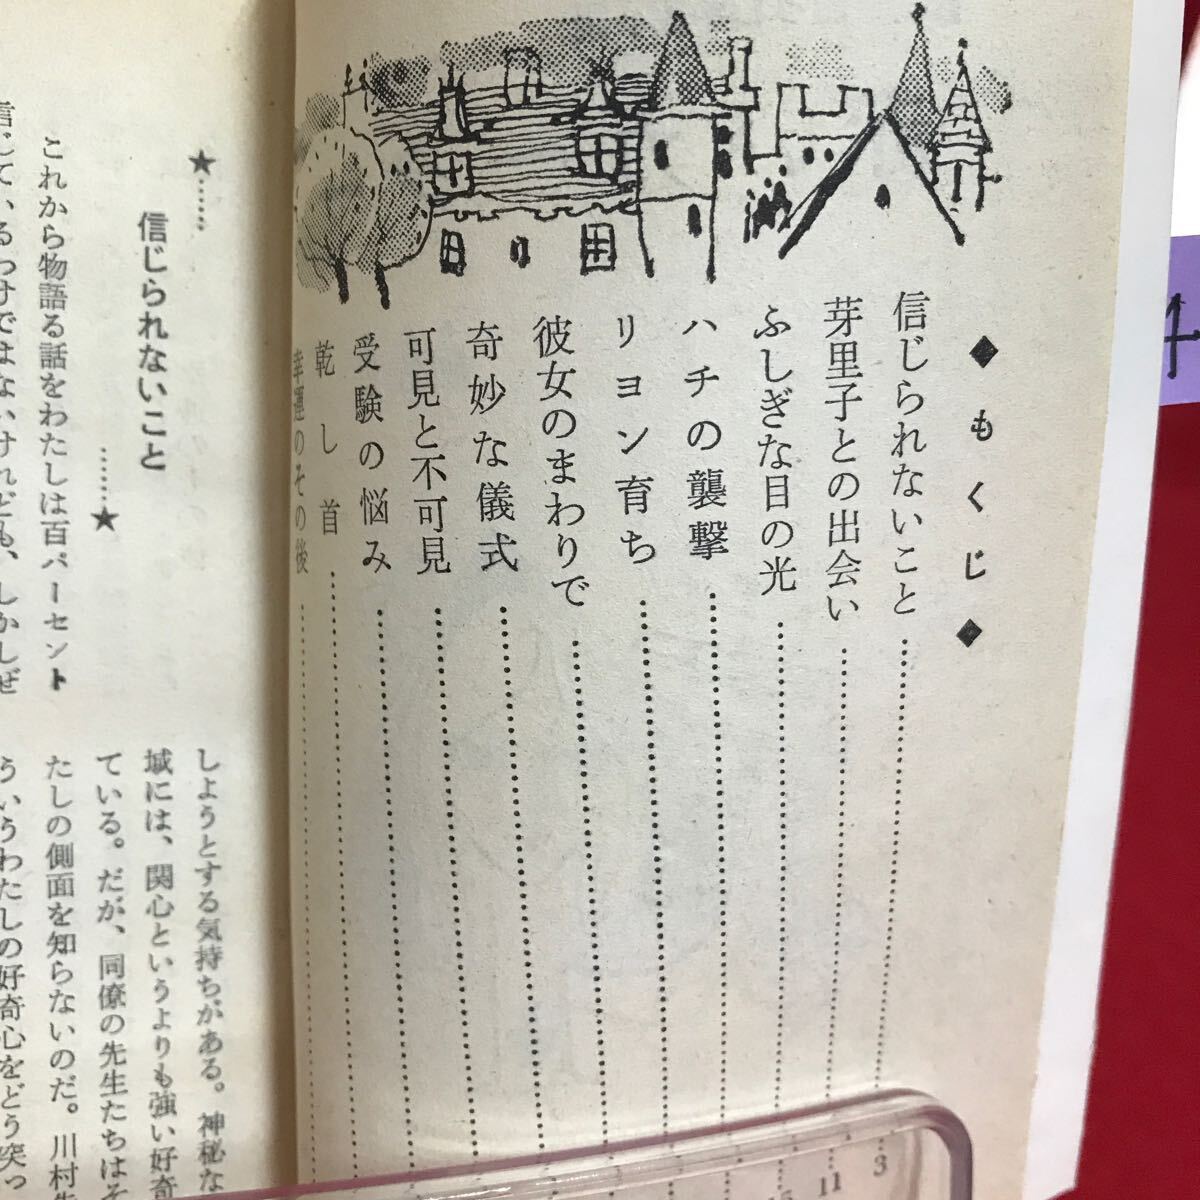 ◆もくじ◆
信じられないこと………3
芽里子との出会い………11
ふしぎな目の光………15
ハチの襲撃………
リヨン育ち………
彼女のまわりで………
奇妙な儀式………
可見と不可見………
受験の悩み………
乾し首………
幸運のその後………
★……
信じられないこと
……★
これから物語る話をわたしは百パーセント
信じているわけではないけれども、しかしぜ
しようとする気持ちがある。神秘な
域には、関心というよりも強い好奇
ている。だが、同僚の先生たちはそ
たしの側面を知らないのだ。川村先
ういうわたしの好奇心をどう突っ